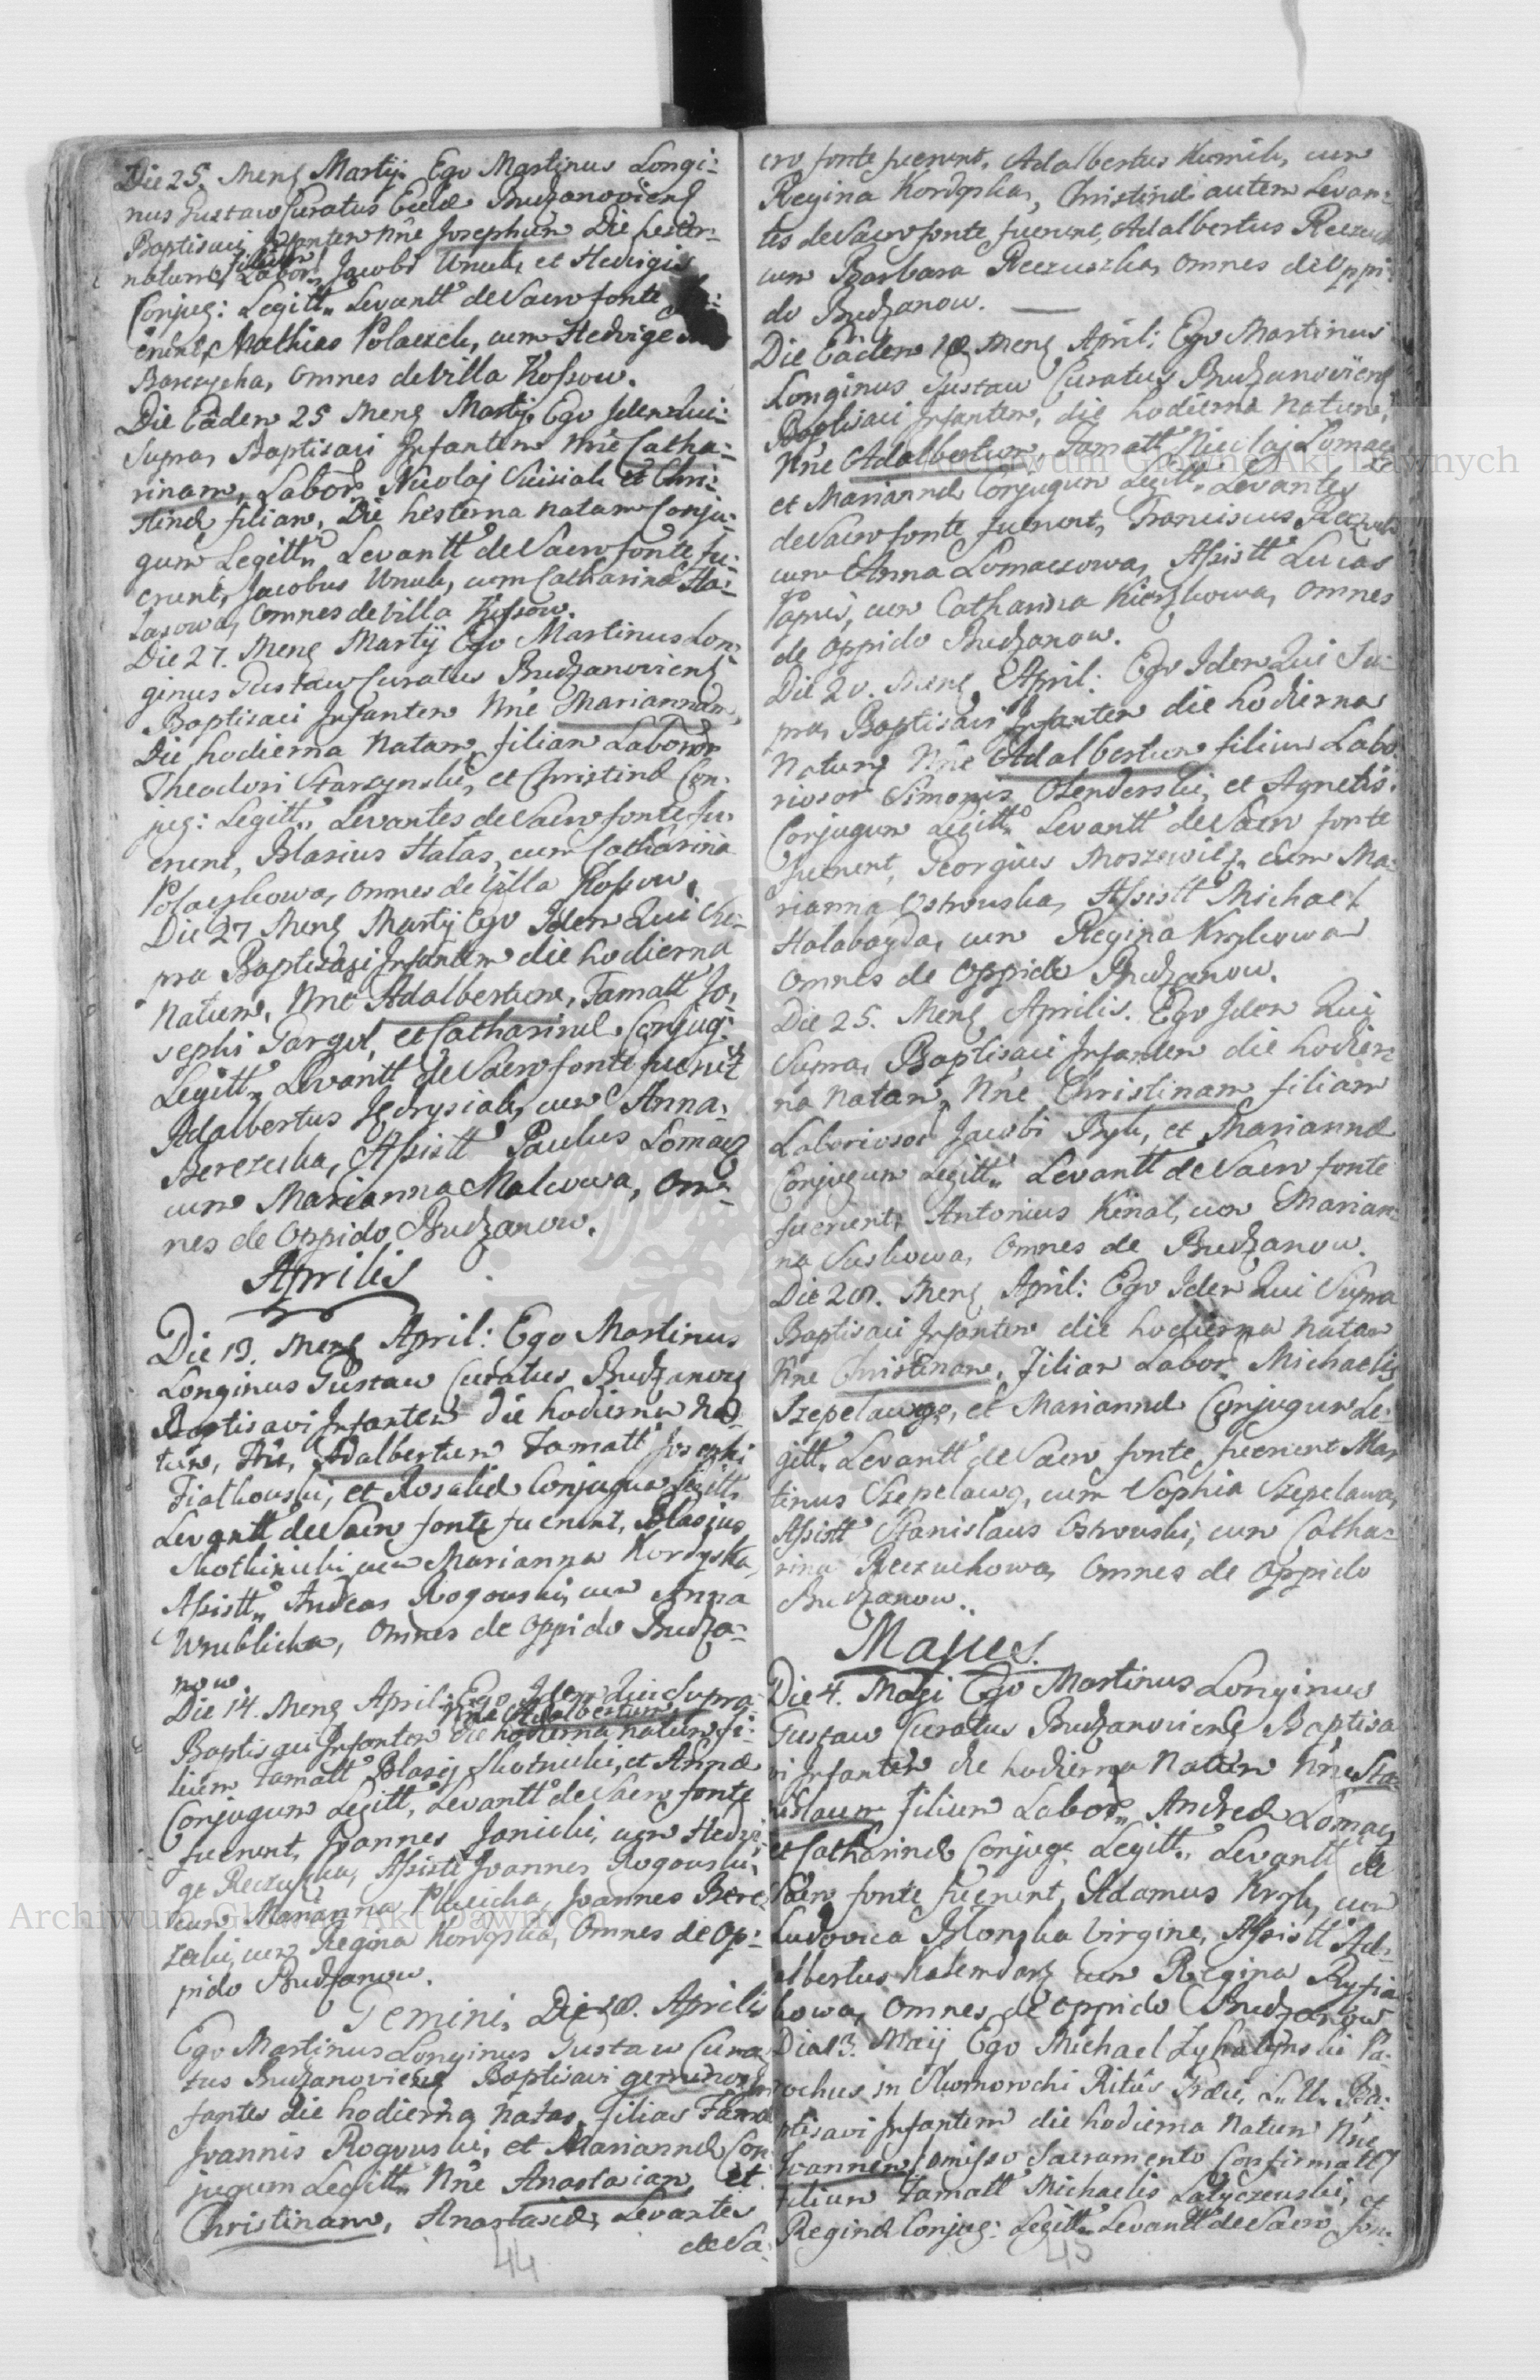 Die 25. Mens Martij. Ego Martinus Longi:
nus Gustaw Curatus Eccle Budzanoviens
Baptisavi Infantem Nne Josephum Die hester:
natum, filium Labor: Jacobi Wnuk, et Hedvigis
Conjug: Legitt: Levantt de Sacro fonte fu:
erunt, Mathias Polaczek, cum Hedvige
Barczycha, omnes de Villa Kossow.
Die Eadem 25 Mens Martij. Ego Idem Qui
Supra, Baptisavi Infantem Nne Catha:
rinam, Labor: Nicolaj et Chri:
stinæ filiam, Die hesterna natam Conju:
gum Legitt: Levantt de Sacro fonte fu:
erunt, Jacobus Wnuk, cum Catharina Ha:
lasowa, omnes de Villa Kossow.
Die 27. Mens Martij Ego Martinus Lon:
ginus Gustaw Curatus Budzanoviens
Baptisavi Infantem Nne Mariannam,
Die hodierna Natam, filiam Labor
Theodori Starzynski, et Christinæ Con:
jug: Legitt: Levantes de Sacro fonte fu:
erunt, Blasius Halas, cum Catharina
Polaczkowa, omnes de Villa Kossow.
Die 27 Mens Martij Ego Idem Qui Su:
pra Baptizavi Infantem die hodierna
Natum, Nne Adalbertum, Famatt Jo:
sephi Gargol, et Catharinæ Conjug:
Legitt: Levantt de Sacro fonte fuerunt
Adalbertus Jedrysiak, cum Anna
Berezecka, Assistt Paulus Lomacz
cum Marianna Malcowa, Om:
nes de Oppido Budzanow.
Aprilis
Die 13. Mens April: Ego Martinus
Longinus Gustaw Curatus Budzanov
Baptisavi Infantem die hodierna na
tum, Nne, Adalbertum Famatt Josephi
Fiałkouski, et Rosaliæ Conjugum Legitt:
Levantt de Sacro fonte fuerunt, Blasius
Skotnicki cum Marianna Kordyska,
Assistt: Andreas Rogouski, cum Anna
Wrublicka, omnes de Oppido Budza:
now.
Die 14. Mens April: Ego Idem Qui Supra
Nne Adalbertum
Baptisavi Infantem die hodierna natum fi:
lium Famatt Blasij Skotnicki, et Annæ
Conjugum Legitt: Levantt de Sacro fonte
fuerunt, Joannes Janicki, cum Hedvi:
ge Reczuska, Assistt Joannes Rogouski
cum Marianna Joannes Bere:
zecki, cum Regina Kordyska, Omnes de Op:
pido Budzanow.
Gemini, Die 18. Aprilis
Ego Martinus Longinus Gustaw Cura
tus Budzanoviens Baptisavi geminos In
fantes die hodierna natas, filias Fama
Joannis Rogouski, et Mariannæ Con
jugum Legitt: Nne Anastasiam, et
Christinam, Anastasiæ, Levantes
de Sa:
44
cro fonte fuerunt, Adalbertus Kumik, cum
Regina Kordyska, Christinæ autem Levan:
tes de Sacro fonte fuerunt, Adalbertus Reczuch
cum Barbara Reczuszka, omnes de Oppi:
do Budzanow.
Die Eadem 18 Mens April: Ego Martinus
Longinus Gustaw Curatus Budzanoviens
Baptisavi Infantem, die hodierna Natum,
Nne Adalbertum, Famatt Nicolaj Lomacz
et Mariannæ Conjugum Legitt: Levantes
de Sacro fonte fuerunt, Franciscus Reczuch
cum Anna Lomaczowa, Assistt Lucas
cum Catharina omnes
de Oppido Budzanow.
Die 20. Mens April: Ego Idem Qui Su:
pra, Baptisavi Infantem die hodierna
Natum, Nne Adalbertum filium Labo
riosor Simonis Olenderski, et Agnetis.
Conjugum Legitt: Levantt de Sacro fonte
fuerunt, Georgius Moszewicz, cum Ma:
rianna Ostrouska, Assistt Michael
Halabayda, cum Regina Krzykowa
omnes de Oppido Budzanow.
Die 25. Mens Aprilis. Ego Idem Qui
Supra, Baptisavi Infantem die hodier:
na natam, Nne Christinam filiam
Laborosor Jacobi Byk, et Mariannæ
Conjugum Legitt: Levantt de Sacro fonte
fuerunt, Antonius Kinal, cum Marian:
na Suskowa, Omnes de Budzanow.
Die 28. Mens April: Ego Idem Qui Supra
Baptisavi Infantem die hodierna natam
Nne Christinam, filiam Labor: Michaelis
Szepelawy, et Mariannæ Conjugum Le:
gitt: Levantt de Sacro fonte fuerunt Mar
tinus Szepelawy, cum Sophia Szepelawa,
Assistt Stanislaus Ostrouski, cum Catha:
rina Reczuchowa, omnes de Oppido
Budzanow.
Majus.
Die 4. Maji Ego Martinus Longinus
Gustaw Curatus Budzanoviens Baptisa
vi Infantem die hodierna Natum Nne Sta:
nislaum filium Labor: Andreæ Lomacz
et Catharinæ Conjug: Legitt: Levantt de
Sacro fonte fuerunt, Adamus Krzyk, cum
Ludovica Blonska Virgine, Assistt Ad:
albertus Kalendarz cum Regina
kowa, omnes de Oppido Budzanow
Die 13. Maij Ego Michael Pa:
rochus in Skomorochi Ritûs Græci, Bap:
tisavi Infantem die hodierna Natum Nne
Joannem, omisso Sacramento Confirmatt
filium Famatt Michaelis Latyczeuski, et
Reginæ Conjug: Legitt: Levantt de Sacro fon:
45
Archiwum Główne Akt Dawnych
Archiwum Główne Akt Dawnych